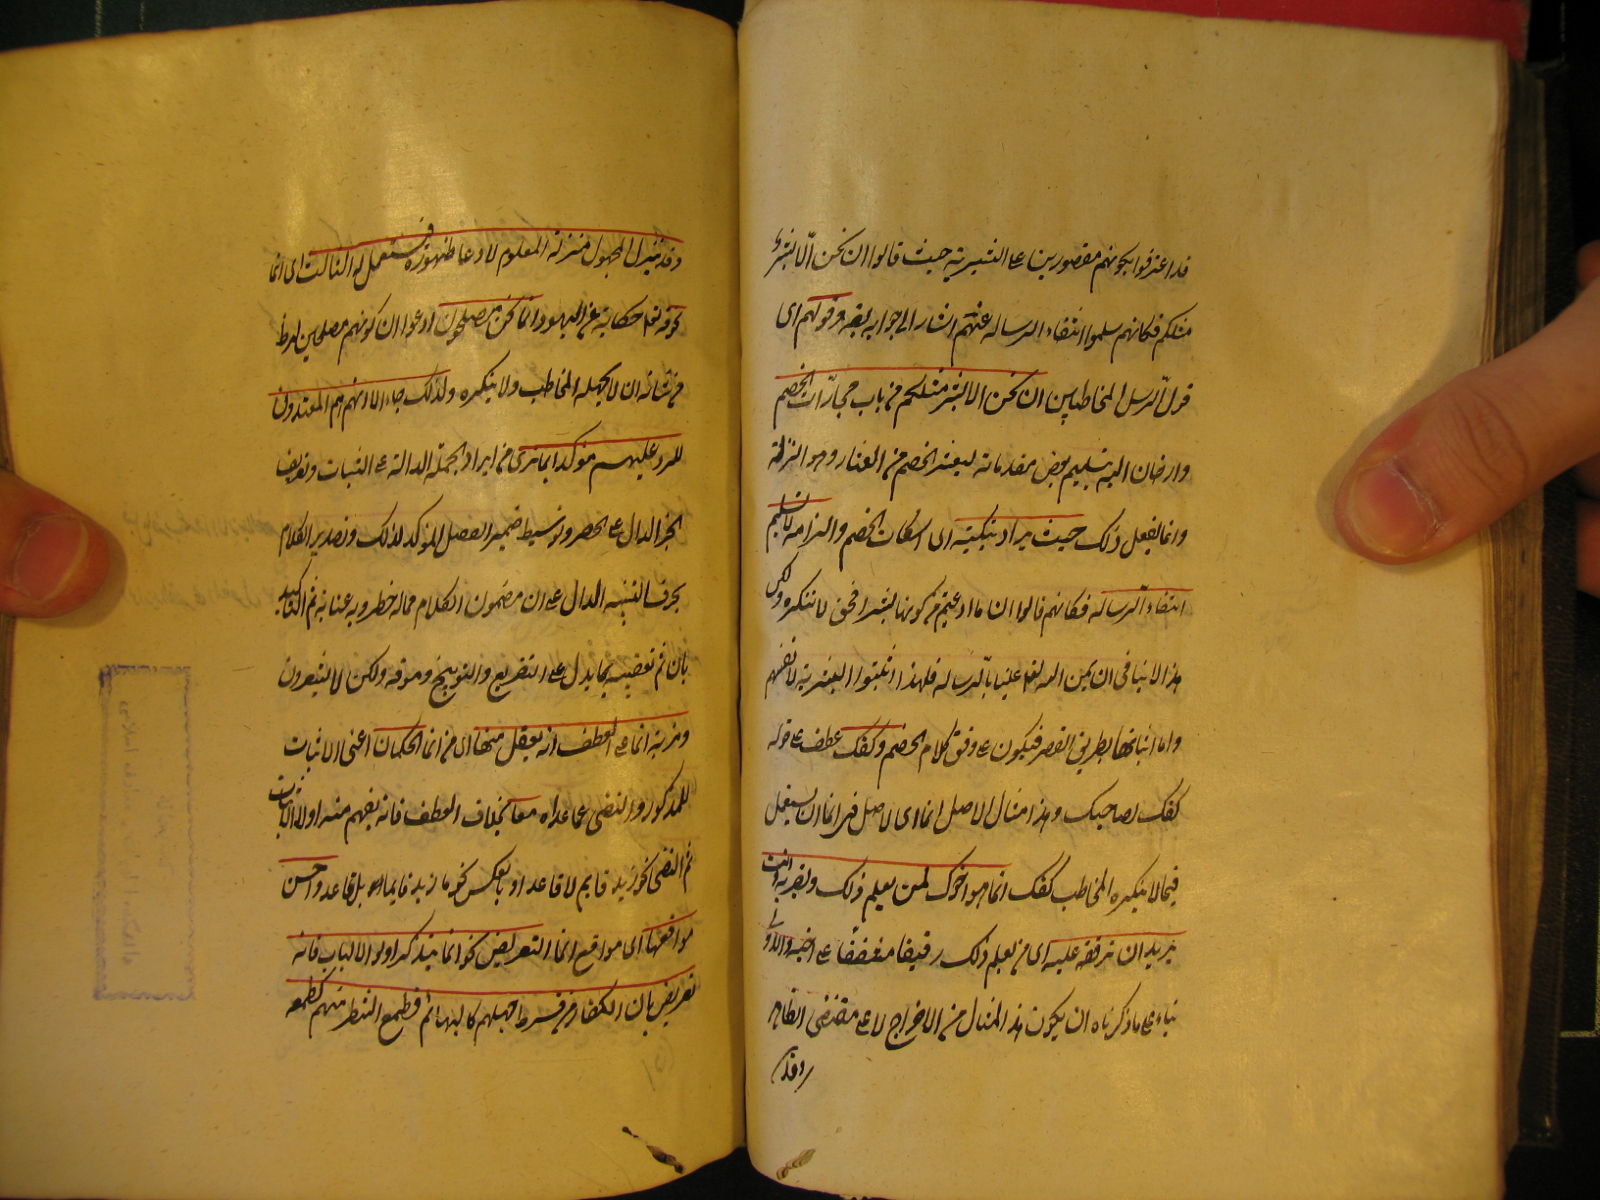 قد اعترفوا بكونهم مقصورين على البشرية حيث قالوا ان نحن الا بشر
مثلكم فكانهم سلموا انتفاء الرسالة عنهم اشار الى جوابه بقوله وقولهم اى
قول الرسل المخاطبين ان نحن الا بشر مثلكم من باب مجاراة الخصم
وارخاء العنان اليه بتسليم بعض مقدماته ليعثر الخصم من العثار وهو الزلة
وانما يفعل ذلك حيث يراد تبكيته اى اسكات الخصم والزامه لا لتسليم
انتفاء الرسالة فكانهم قالوا ان ما ادعيتم من كوننا بشرا فحق لا ننكره ولكن
هذا لا ينافى ان يمن الله تعالى علينا بالرسالة فلهذا اثبتوا البشرية لانفسهم
واما اثباتها بطريق القصر فيكون على وفق كلام الخصم وكقولك عطف على قوله
كقولك لصاحبك وهذا مثال لاصل انما اى الاصل فى انما ان يستعمل
فيما لا ينكره المخاطب كقولك انما هو اخوك لمن يعلم ذلك ويقر به وانت
تريد ان ترققه عليه اى من يعلم ذلك رقيقا مشفقا على اخيه والاولى
بناء على ما ذكرناه ان يكون هذا المثال من الاخراج لا على مقتضى الظاهر
وقد
وقد ينزل المجهول منزلة المعلوم لادعاء ظهوره فيستعمل له الثالث اى انما
نحو قوله تعالى حكاية عن اليهود انما نحن مصلحون ادعوا ان كونهم مصلحين امر ظاهر
من شانه ان لا يجهله المخاطب ولا ينكره ولذلك جاء الا انهم هم المفسدون
للرد عليهم مؤكدا بما ترى من ايراد الجملة الدالة على الثبات وتعريف
الخبر الدال على الحصر وتوسيط ضمير الفصل المؤكد لذلك وتصدير الكلام
بحرف التنبيه الدال على ان مضمون الكلام مما له خطر وبه عناية ثم التاكيد
بان ثم تعقيبه بما يدل على التقريع والتوبيخ وهو قوله ولكن لا يشعرون
ومزية انما على العطف انه يعقل منها اى من انما الحكمان اعنى الاثبات
للمذكور والنفى عما عداه معا بخلاف العطف فانه يفهم منه اولا الاثبات
ثم النفى نحو زيد قايم لا قاعد او بالعكس نحو ما زيد قايما بل قاعد واحسن
مواقعها اى مواقع انما التعريض نحو انما يتذكر اولوا الالباب فانه
تعريض بان الكفار من فرط جهلهم كالبهائم فطمع النظر منهم كطمعه